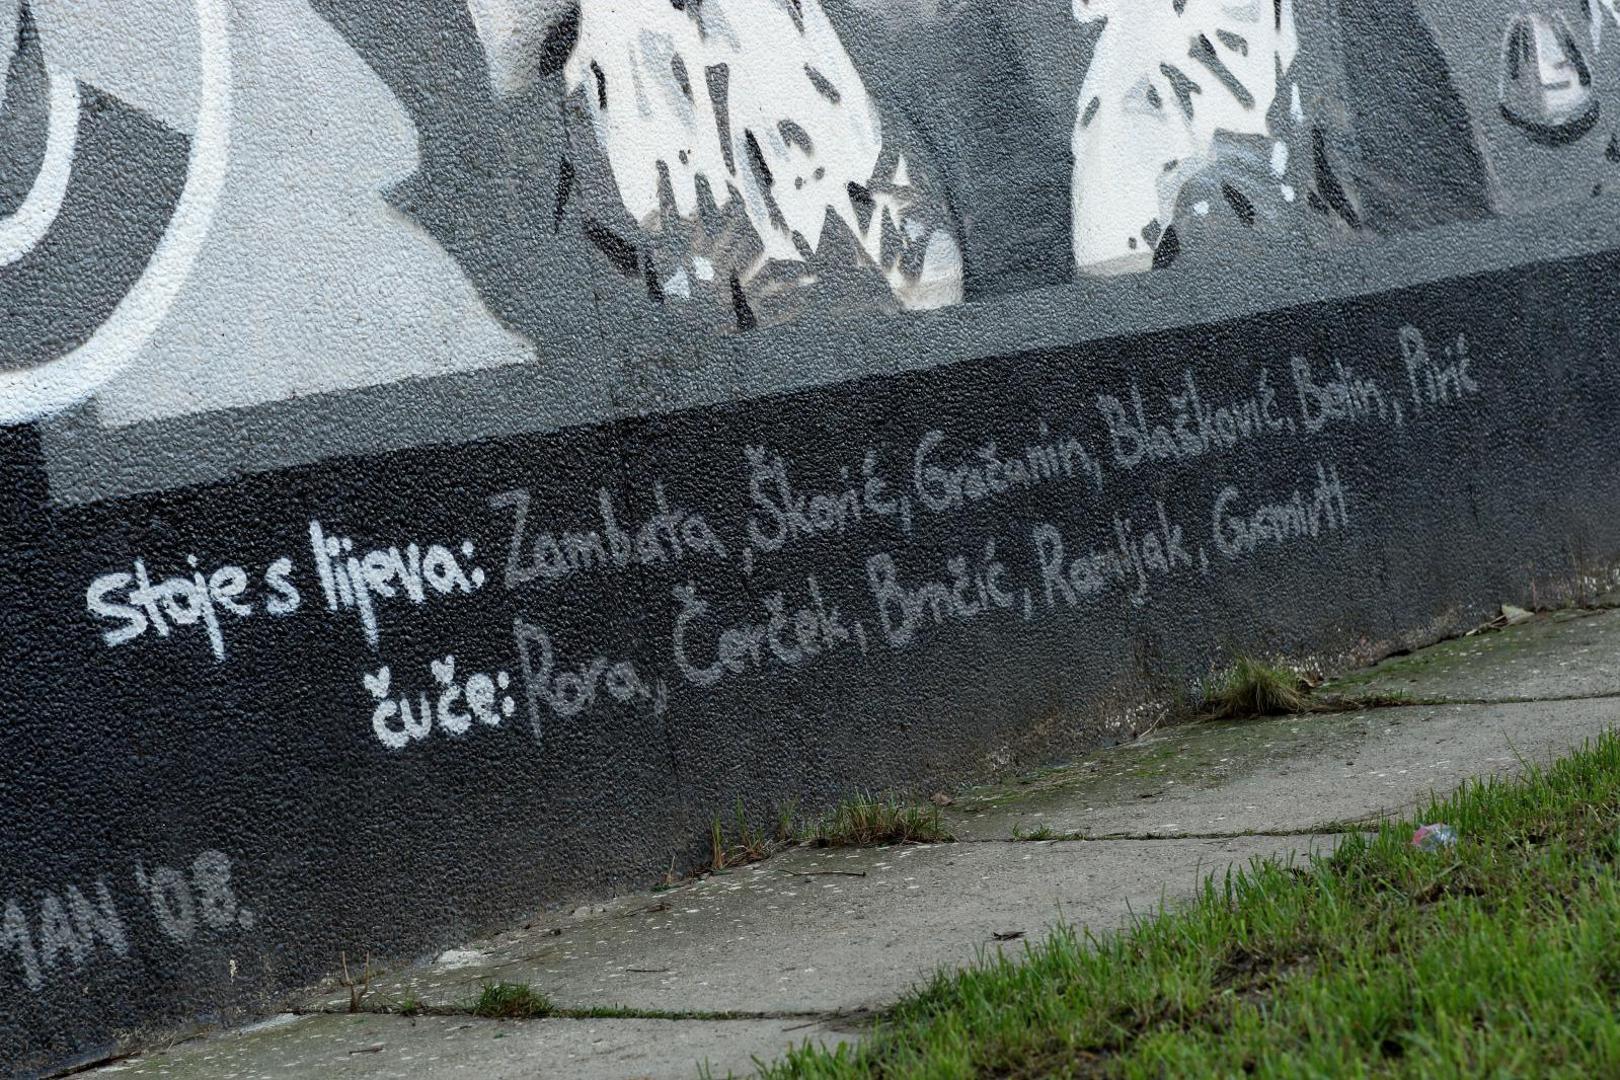 Stoje s lijeva: Zambata, Škorić, Gračanin, Blašković, Belin, Pirić
čuče: Rora, Čerček, Brnčić, Ramljak, Gusmirtl
MAN '08.